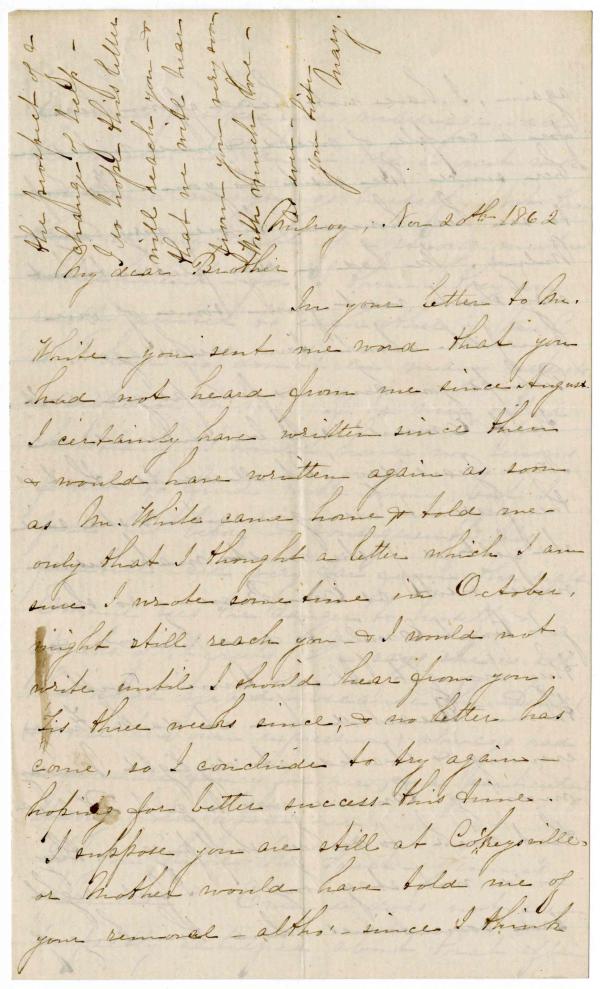 the prospect of a
change of help -
I do hope this letter
will reach you - &
that we will hear
from you very soon
With much love -
your sister
Mary.
Milroy, Nov 20th 1862
My dear Brother
In your letter to Mr.
White - you sent me word that you
had not heard from me since August
I certainly have written since then
& would have written again as soon
as Mr. White came home & told me -
only that I thought a letter which I am
sure I wrote sometime in October,
might still reach you - & I would not
write until I should hear from you.
Tis three weeks since, & no letter has
come, so I conclude to try again -
hoping for better success this time.
I suppose you are still at Cockeysville -
or Mother would have told me of
your removal - altho' - since I think